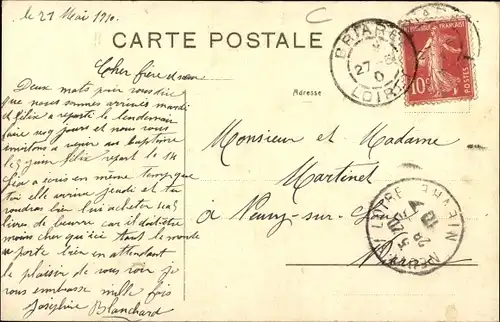 le 27 Mai 1910.
CARTE POSTALE
Cher frère et sœur
Deux mots pour vous dire
que nous sommes arrivés mardi
Félix a reparti le lendemain
faire ses jours et nous vous
invitons a venir au baptême
le juin Félix repart le 14
a écris en même temps que
toi elle arrive jeudi et tu
voudras bien lui acheter
livres de beurre car il doit être
moins cher qu'ici tout le monde
se porte bien en attendant
le plaisir de vous voir je
vous embrasse mille fois
Joséphine Blanchard
Adresse
Monsieur et Madame
Martinet
à Neuvy-sur-Loire
Nièvre
BRIARE
27
LOIRET
REPUBLIQUE FRANÇAISE
10c
POSTES
NEUVY S LOIRE
NIEVRE
28